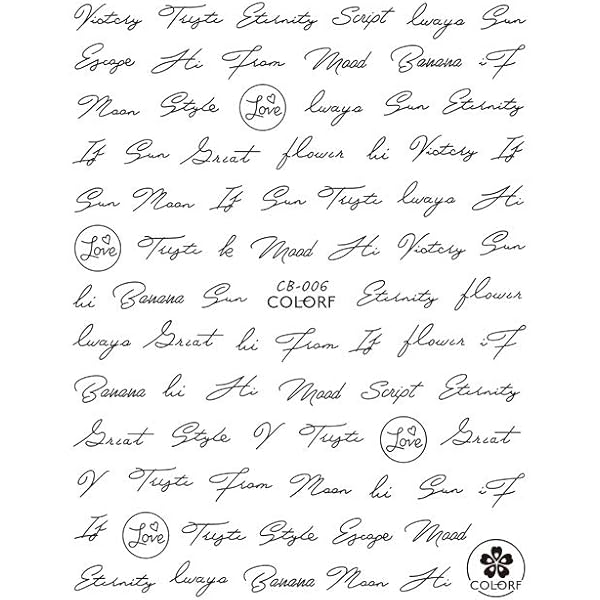 Victory Triste Eternity Script lwaya Sun
Escape Hi From Mood Banana iF
Moon Style Love lwaya Sun Eternity
If Sun Great flower hi Victory If
Sun Moon If Sun Triste lwaya Hi
Love Triste k Mood Hi Victory Sun
hi Banana Sun CB-006 COLORF Eternity flower
lwaya Great hi From If flower iF
Banana hi Hi Mood Script Eternity
Great Style V Triste Love Great
V Triste From Moon hi Sun iF
If Love Triste Style Escape Mood
Eternity lwaya Banana Moon Hi COLORF